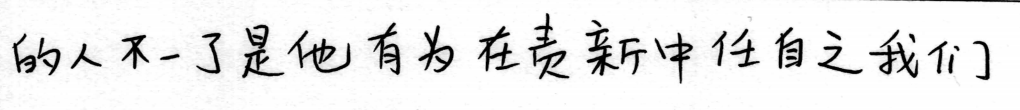 的人不一了是他有为在责新中任自之我们